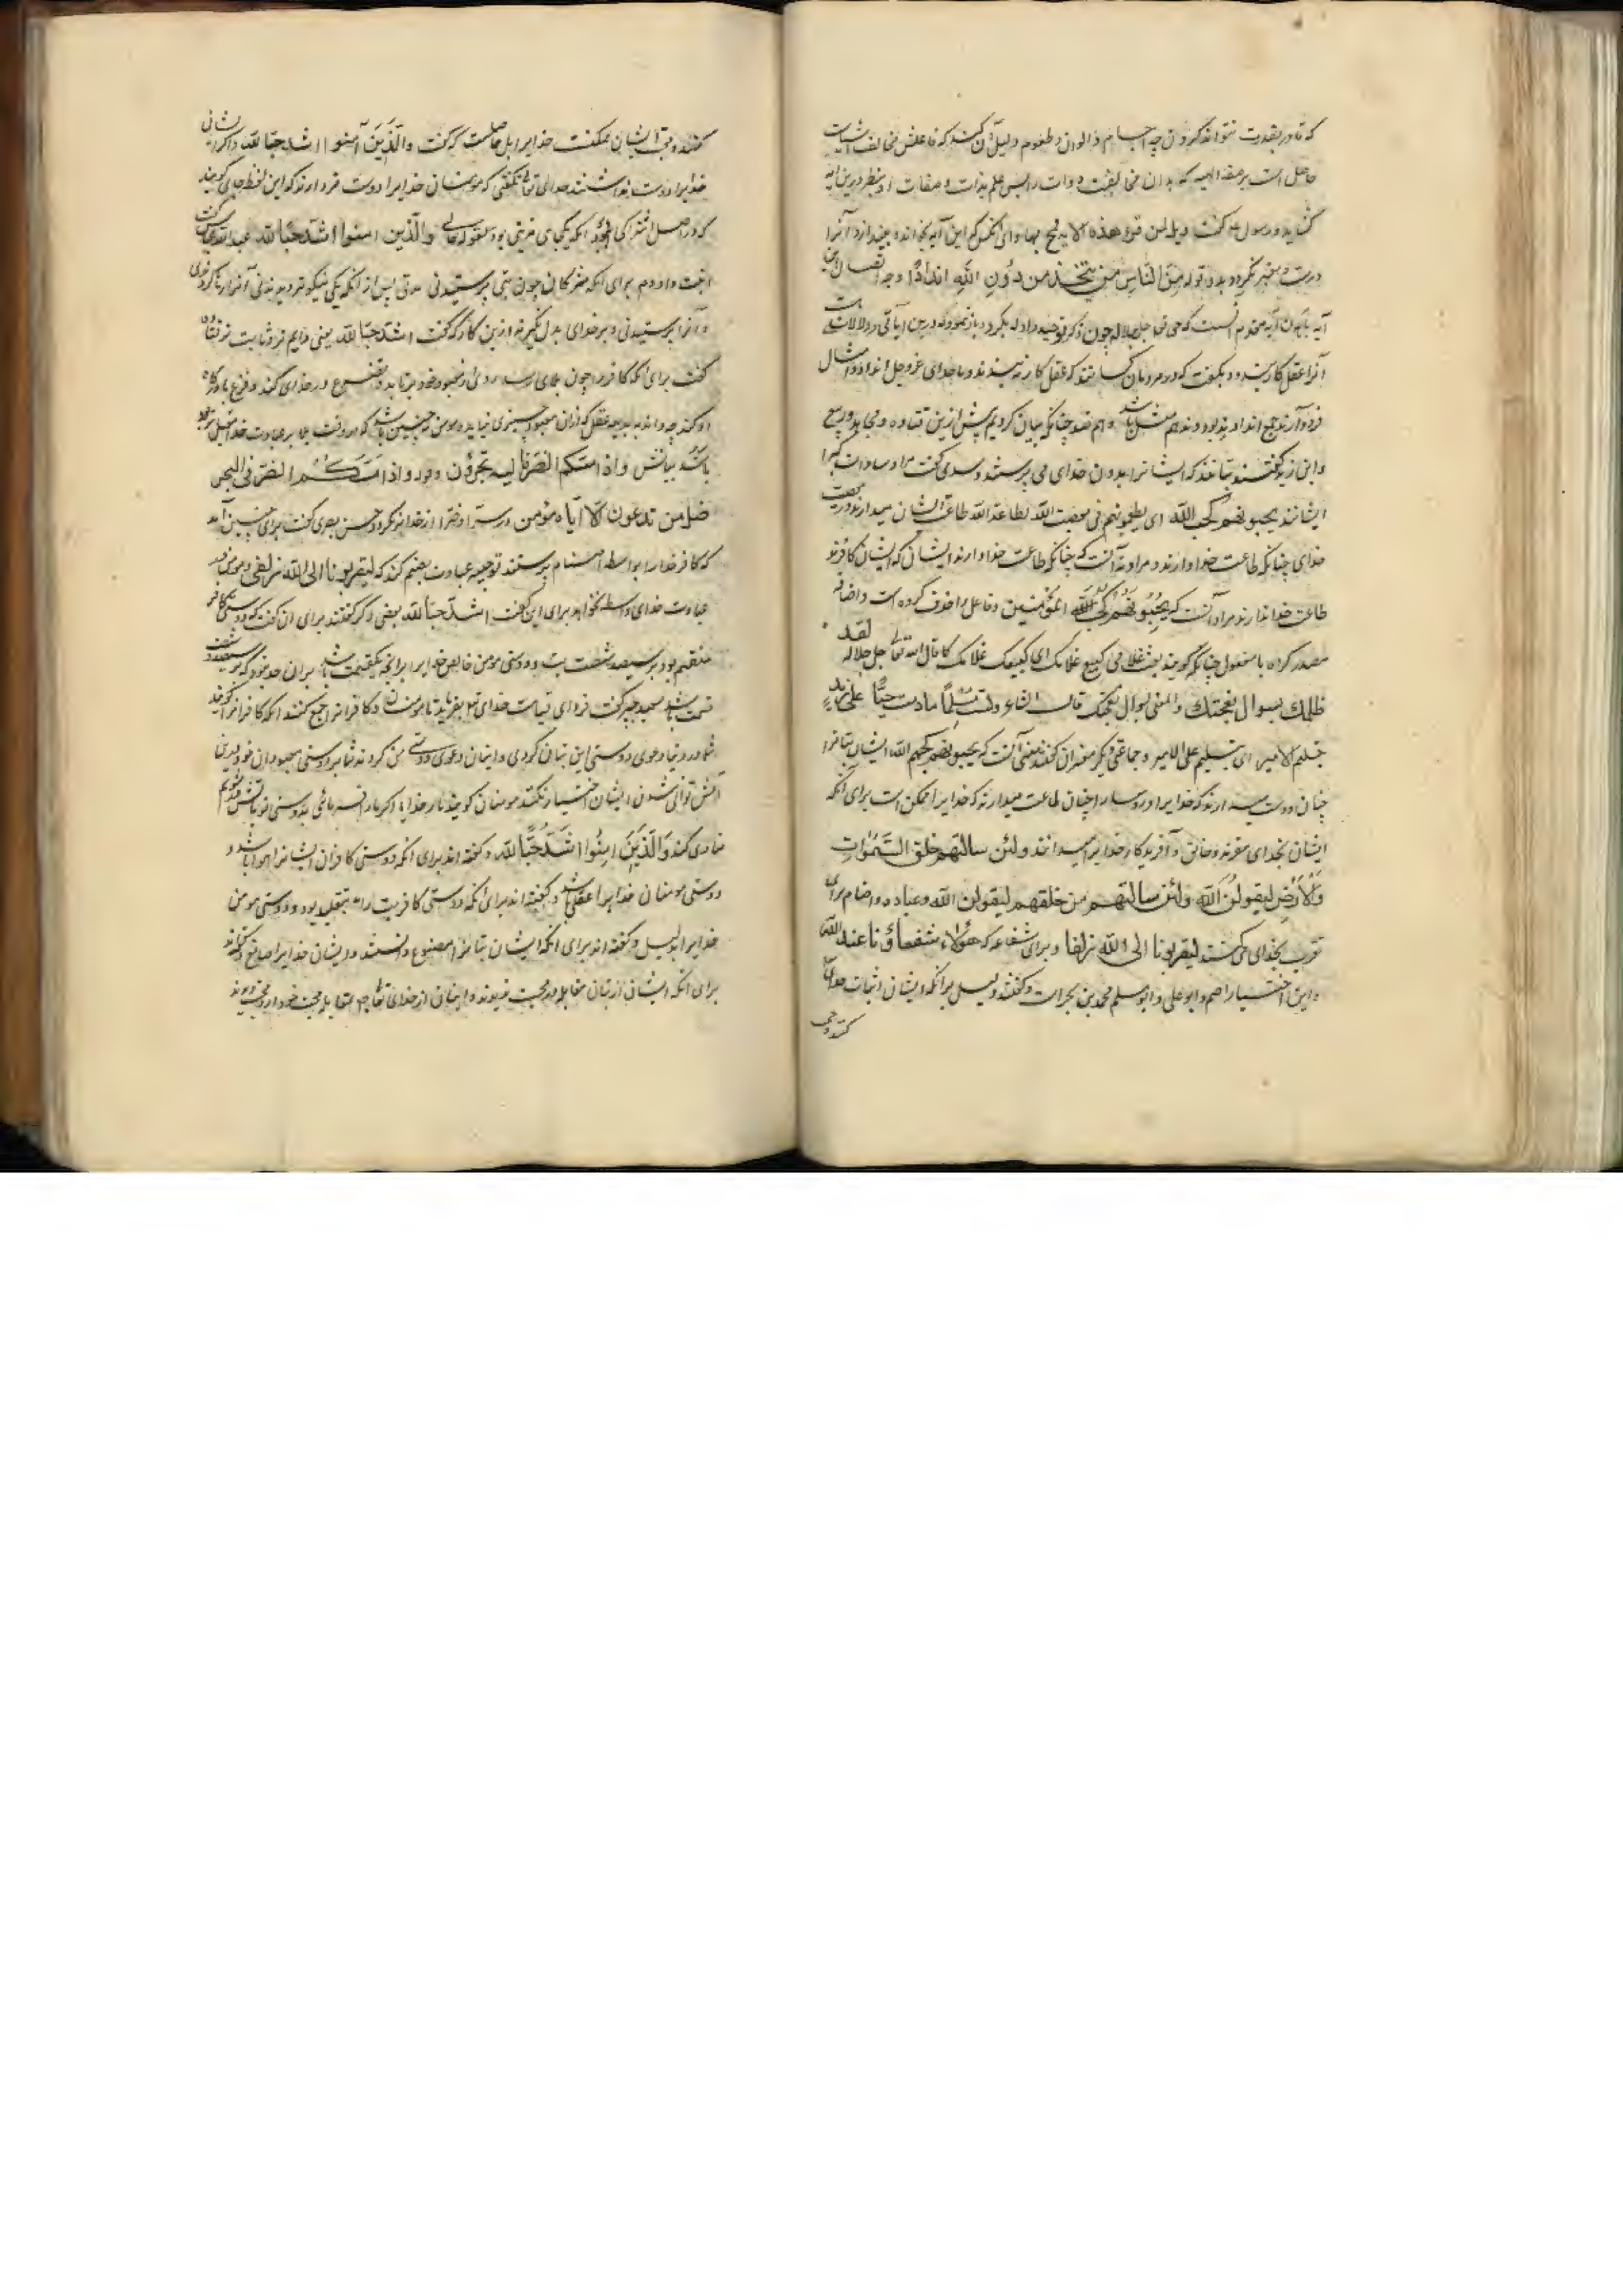 که قادر بقدرت نتواند کردن چه اجسام و الوان و طعوم و دلیل آن کند که فاعلش مخالف اشیاست
حاصل است بر صفة الهیه که بدان مخالفت ذوات را پس علم بذات و صفات او بنظر درین آیه
کشاید و رسول گفت ویل لمن قرء هذه الایه فمج بها وای آنکس که این آیه بخواند و بیندازد آنرا
و معتبر نگردد بدو قوله مِنَ النّاسِ مَن یَتَّخِذُ مِن دُونِ اللّهِ اندادًا وجه اتصال این
آیه بآیه متقدم آنست که حق تعالی جل جلاله چون ذکر توحید و ادله بکرد و باز نمود که درین آیاتی و دلالات است
آنرا عقل کار بندد و بگفت که در مردمان کسانند که عقل کار نبندند و با خدای عزوجل انداد و امثال
فرود آرند جمع انداد ند بود و ند هم مثل باشد و هم ضد چنانکه بیان کردیم پیش ازین قتاده و مجاهد و ربیع
و ابن زید گفتند بتانند که ایشانرا بدون خدای می پرستند و سدی گفت مراد سادات کبرا
ایشانند یحبونهم کحب الله ای یطیعونهم فی معصیت الله لطاعة الله طاعت ایشان میدارند در معصیت
خدای چنانکه طاعت خدا دارند و مراد نه آنست که چنانکه طاعت خدا دارند ایشان که ایشان کافرند
طاعت خدا ندارند مراد آنست که یُحِبُّونَهُم کَحُبِّ اللّه المؤمنین و فاعل را حذف کرده است و اضافه
مصدر کرده با مفعول چنانکه گویند بعت غلامی کبیع غلامک ای کبیعک غلامک کما قال الله تعالی جل جلاله لقد
ظلمك بسوال نعجتك والمعنی بسوال نعجتک قال الشاعر ولست مسلّمًا ما دمت حیًّا علی زید
بتسلیم الامیر ای بتسلیم علی الامیر و جماعتی دیگر مفسران گفتند معنی آنست که یحبونهم کحبهم الله ایشان بتانرا
چنان دوست میدارند که خدایرا و رؤسا را چنان طاعت میدارند که خدایرا ممکن است برای آنکه
ایشان بخدای مقرند و خالق و آفریدگار خدایرا میدانند ولئن سالتهم من خلق السّموات
والأرض لیقولنّ الله ولئن سالتهم من خلقهم لیقولن الله و عباده اصنام برای
تقرب بخدای می کنند لیقربونا الی الله زلفا و برای شفاعه که هؤلاء شفعاؤنا عند الله
و این اختیار اصم و ابو علی و ابو مسلم محمد بن بحر است و گفتند دلیل برانکه ایشان اثبات خدای
کنند و حب
کنند و حب ایشان ممکنست خدایرا بل حاصلست که گفت والَّذینَ آمنوا اشد حبًا لله و اگر ایشان
خدایرا دوست نداشتند خدای تعالی نگفتی که مؤمنان خدایرا دوست تر دارند که این لفظ جای گویند
که در اصل اشتراکی بود آنکه یکجای مزیتی بود بقوله تعالی والّذین امنوا اشدّ حبًّا لله عبدالله عباس گفت
و دوم برای آنکه مشرکان چون بتی پرستیدندی مدتی پس از آنکه یکی نیکوتر دیدندی آنرا رها کردندی
و آنرا پرستیدندی و مؤمن بر خدای بدل نگیرند و ازین کار که گفت اشدّ حبًّا لله یعنی دایم تر و ثابت تر قتاده
گفت برای آنکه کافر چون بلای رسد روی از معبود خود برتابد و تضرع در خدای کند و فزع با درگاه
او کند چه داند به بدیهه عقل که ازان معبود چیزی نیاید و مؤمن نه چنین باشد که او در وقت بلا بر عبادت خدا مقبل تر بود
باشد بیانش واذا مسّکم الضّرّ فالیه تجئرون وقوله واذا مَسَّکُم الضّرّ فی البحر
ضل من تدعون الّا ایّاه مؤمن در سرّا و ضرّا از خدا بر نگردد حسن بصری گفت برای چنین آمد
که کافر خدا را بواسطه اصنام پرستند توجیه عبادت بصنم کند که لیقربونا الی الله زلفی و مؤمن در
عبادت خدای واسطه نخواهد برای این گفت اشدّ حبًّا لله بعضی دگر گفتند برای آن گفت که دوستی کافر
منقسم بود بر سیصد و شصت بت و دوستی مؤمن خالص خدایرا برانچه یکقسمت باشد بران حد نبود که بر سیصد و شصت
قسمت باشد سعید جبیر گفت فردای قیامت خدای تعالی بفرماید تا مؤمنان و کافرانرا جمع کنند آنکه کافرانرا گویند
شما در دنیا دعوی دوستی این بتان کردی و اینان دعوی دوستی من کردند شما بر دوستی معبودان خود درین
آتش توانی شدن ایشان اختیار نکنند مؤمنان گویند بار خدایا اگر ما را فرمائی بدوستی تو بآتش در شویم
منادی کند وَالَّذینَ امنُوا اشَدُّ حُبًّا لله و گفته اند برای آنکه دوستی کافران ایشانرا هوا باشد و
دوستی مؤمنان خدا را عقلی باشد و گفته اند برای آنکه دوستی کافر بت را به تقلید بود و دوستی مؤمن
خدایرا بدلیل و گفته اند برای آنکه ایشان بتانرا مصنوع دانستند و ایشان خدایرا صانع
برای آنکه ایشان از بتان مقابله محبت ندیدند و اینان از خدای تعالی مقابله محبت خود